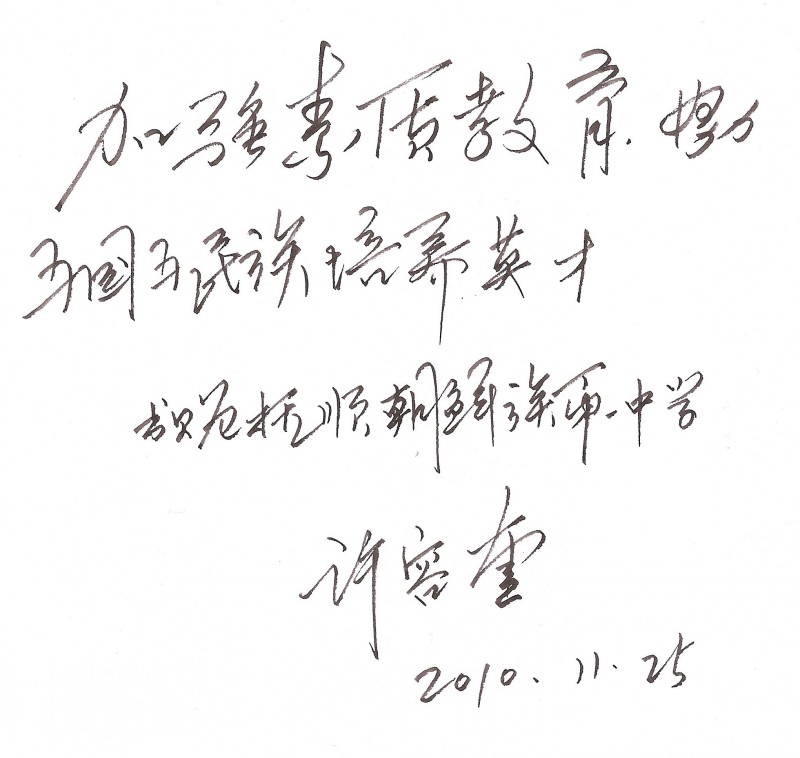 加强素质教育.
为国为民族培养英才
抚顺朝鲜族第一中学
许容奎
2010.11.25